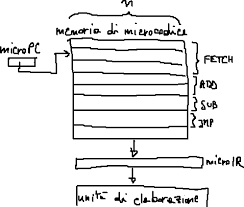 n
memoria di microcodice
microPC
FETCH
ADD
SUB
JMP
microIR
unità di elaborazione